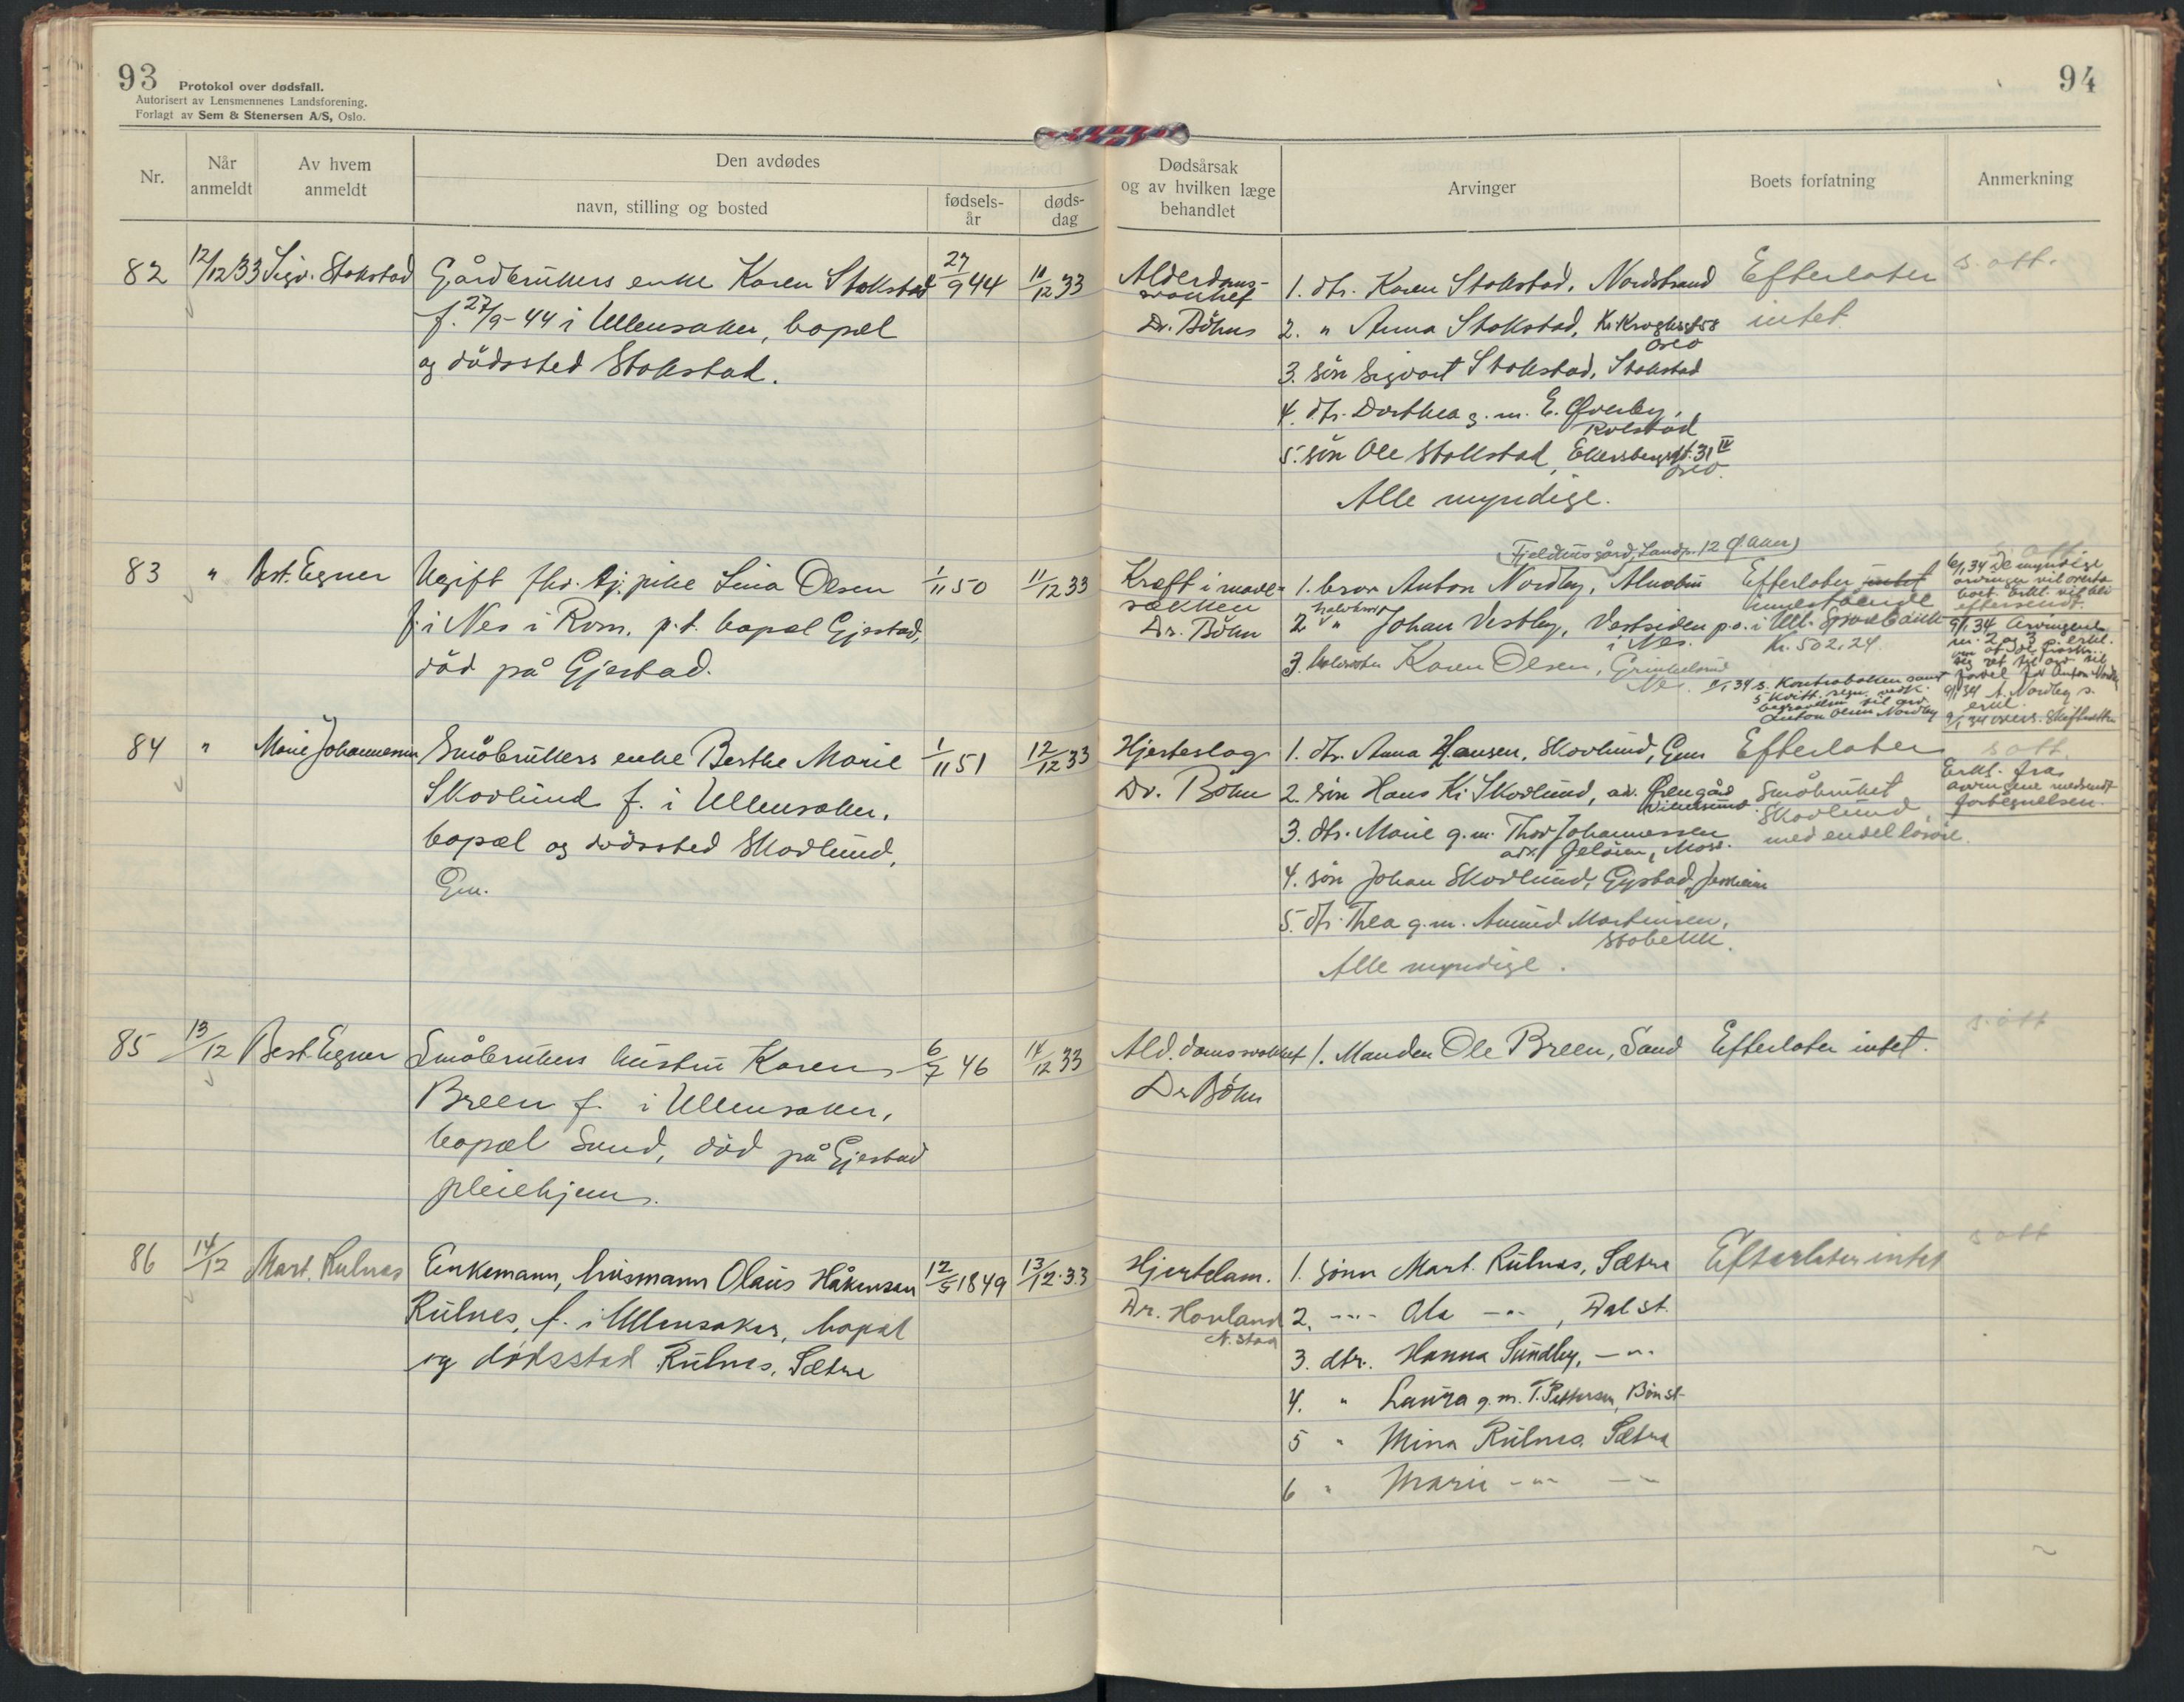 93 Protokol over dødsfall.
Autorisert av Lensmennenes Landsforening.
Forlagt av Sem & Stenersen A/S, Oslo.
94
Nr.
Når anmeldt
Av hvem anmeldt
Den avdødes
navn, stilling og bosted
fødsels-år
døds-dag
Dødsårsak og av hvilken læge behandlet
Arvinger
Boets forfatning
Anmerkning
82 12/12 33 Sigv. Stokstad Gårdbrukers enke Karen Stokstad 27/9 44 10/12 33
f. 27/9-44 i Ullensaker, bopæl
og dödssted Stokstad.
Alderdoms-
svakhet
Dr. Böhn
1. dtr. Karen Stokstad, Nordstrand
2. " Anna Stokstad, Kr. Kroghsgt 58
Oslo
3. sön Sigvart Stokstad, Stokstad
4. dtr. Dorthea g. m. E. Øverby,
Rolstad
5. sön Ole Stokstad, Ekersbergsgt. 31 IV
Oslo.
Alle myndige.
Efterlater
intet
s. att.
83 " Best. Egner Ugift fhv. tj. pike Lina Olsen 1/11 50 11/12 33
f. i Nes i Rom. p.t. bopæl Gjestad,
död på Gjestad.
Kreft i mave-
sækken
Dr. Böhn
1. bror Anton Nordby, Alnabru
2 halvbror " Johan Vestby, Vestsiden p.o.
i Nes.
3. halvsöster Karen Olsen,
Nes.
Efterlater intet
innestående
i Ull. Sparebank
Kr. 502,24.
6/1 34 De myndige
arvinger vil overta
boet. Erkl. vil bli
eftersendt.
9/1 34 Arvingene
nr. 2 og 3 p. erkl.
9/1 34 A. Nordby s.
erkl.
84 " Marie Johannessen Småbrukers enke Berthe Marie 1/11 51 12/12 33
Skovlund f. i Ullensaker,
bopæl og dödssted Skovlund,
Gm.
Hjerteslag
Dr. Böhn
1. dtr. Anna Hansen, Skovlund, Gm
2. sön Hans Kr. Skovlund, ad. Ørengård
3. dtr. Marie g. m. Thor Johannessen
adr. Jelöien, Moss.
4. sön Johan Skovlund, Gystad, Jessheim
5. dtr. Thea g. m. Amund Martinsen,
Stabekk.
Alle myndige.
Efterlater
Småbruket
Skovlund
med endel lösöre.
s. att.
Erkl. fra
arvingene medsendt
fortegnelsen.
85 13/12 Best. Egner Småbrukers hustru Karen 6/7 46 14/12 33
Breen f. i Ullensaker,
bopæl Sand, död på Gjestad
pleiehjem.
Ald.domssvakhet
Dr Böhn
1. Manden Ole Breen, Sand
Efterlater intet.
s. att
86 14/12 Mart. Rulnes Enkemann, husmann Olaus Håkensen 12/5 1849 13/12.33
Rulnes, f. i Ullensaker, bopæl
og dödsstad Rulnes, Sætre
Hjertelam.
Dr. Hovland
1. sönn Mart. Rulnes, Sætre
2. -"- Ole -"-, Dal st.
3. dtr. Hanna Sundby, -"-
4. " Laura g. m. T. Pettersen, Bön st.
5 " Mina Rulnes Sætre
6 " Marie -"- -"-
Efterlater intet
s att